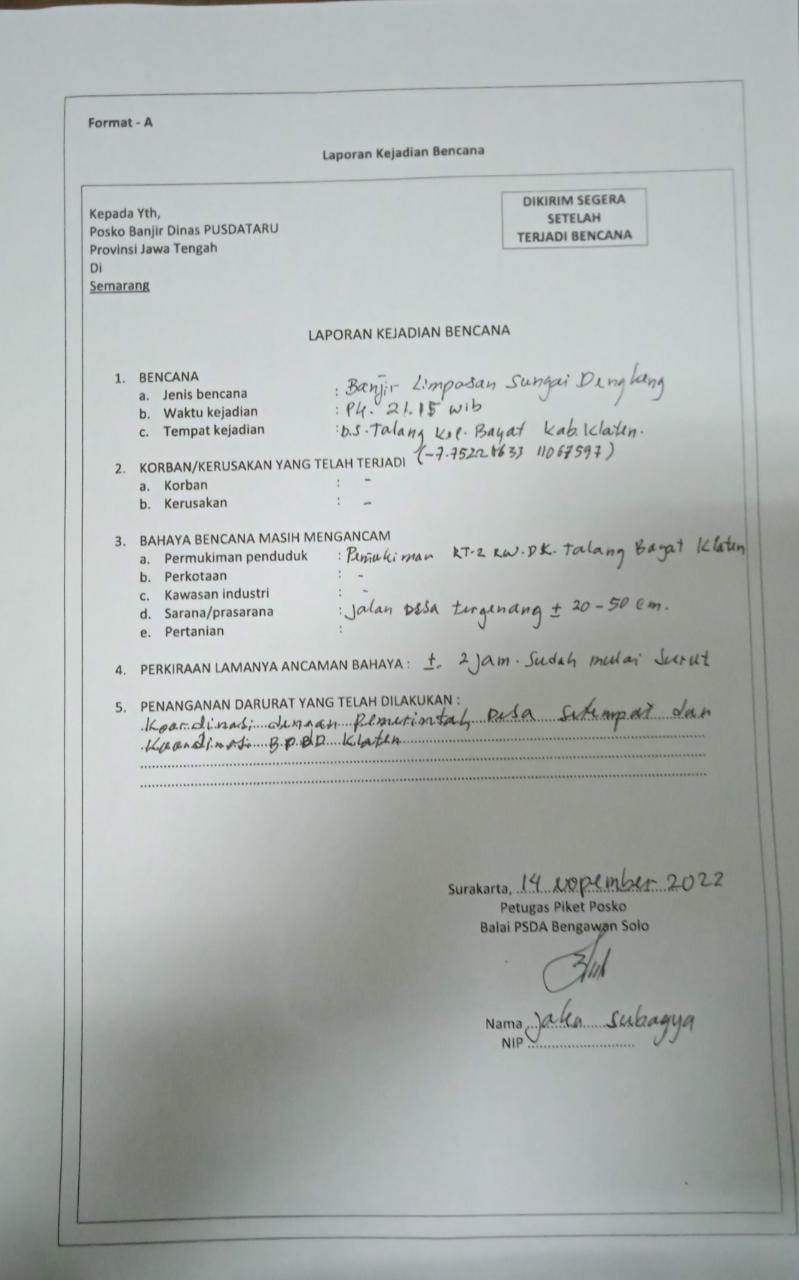 Format - A
Laporan Kejadian Bencana
Kepada Yth,
Posko Banjir Dinas PUSDATARU
Provinsi Jawa Tengah
Di
Semarang
DIKIRIM SEGERA
SETELAH
TERJADI BENCANA
LAPORAN KEJADIAN BENCANA
1. BENCANA
a. Jenis bencana : Banjir Limpasan Sungai Dengkeng
b. Waktu kejadian : Pk. 21.15 wib
c. Tempat kejadian : DS. Talang Kec. Bayat Kab. Klaten.
2. KORBAN/KERUSAKAN YANG TELAH TERJADI (-7.75228633 11067597)
a. Korban : -
b. Kerusakan : -
3. BAHAYA BENCANA MASIH MENGANCAM
a. Permukiman penduduk : Pemukiman RT-2 RW. DK. Talang Bayat Klaten
b. Perkotaan : -
c. Kawasan industri : -
d. Sarana/prasarana : Jalan Desa tergenang ± 20-50 cm.
e. Pertanian :
4. PERKIRAAN LAMANYA ANCAMAN BAHAYA : ±. 2 jam. Sudah mulai Surut
5. PENANGANAN DARURAT YANG TELAH DILAKUKAN :
Koordinasi dengan Pemerintah Desa Setempat dan
Koordinasi B.P.B.D Klaten
Surakarta, 14 Nopember 2022
Petugas Piket Posko
Balai PSDA Bengawan Solo
Nama Jaka Subagya
NIP